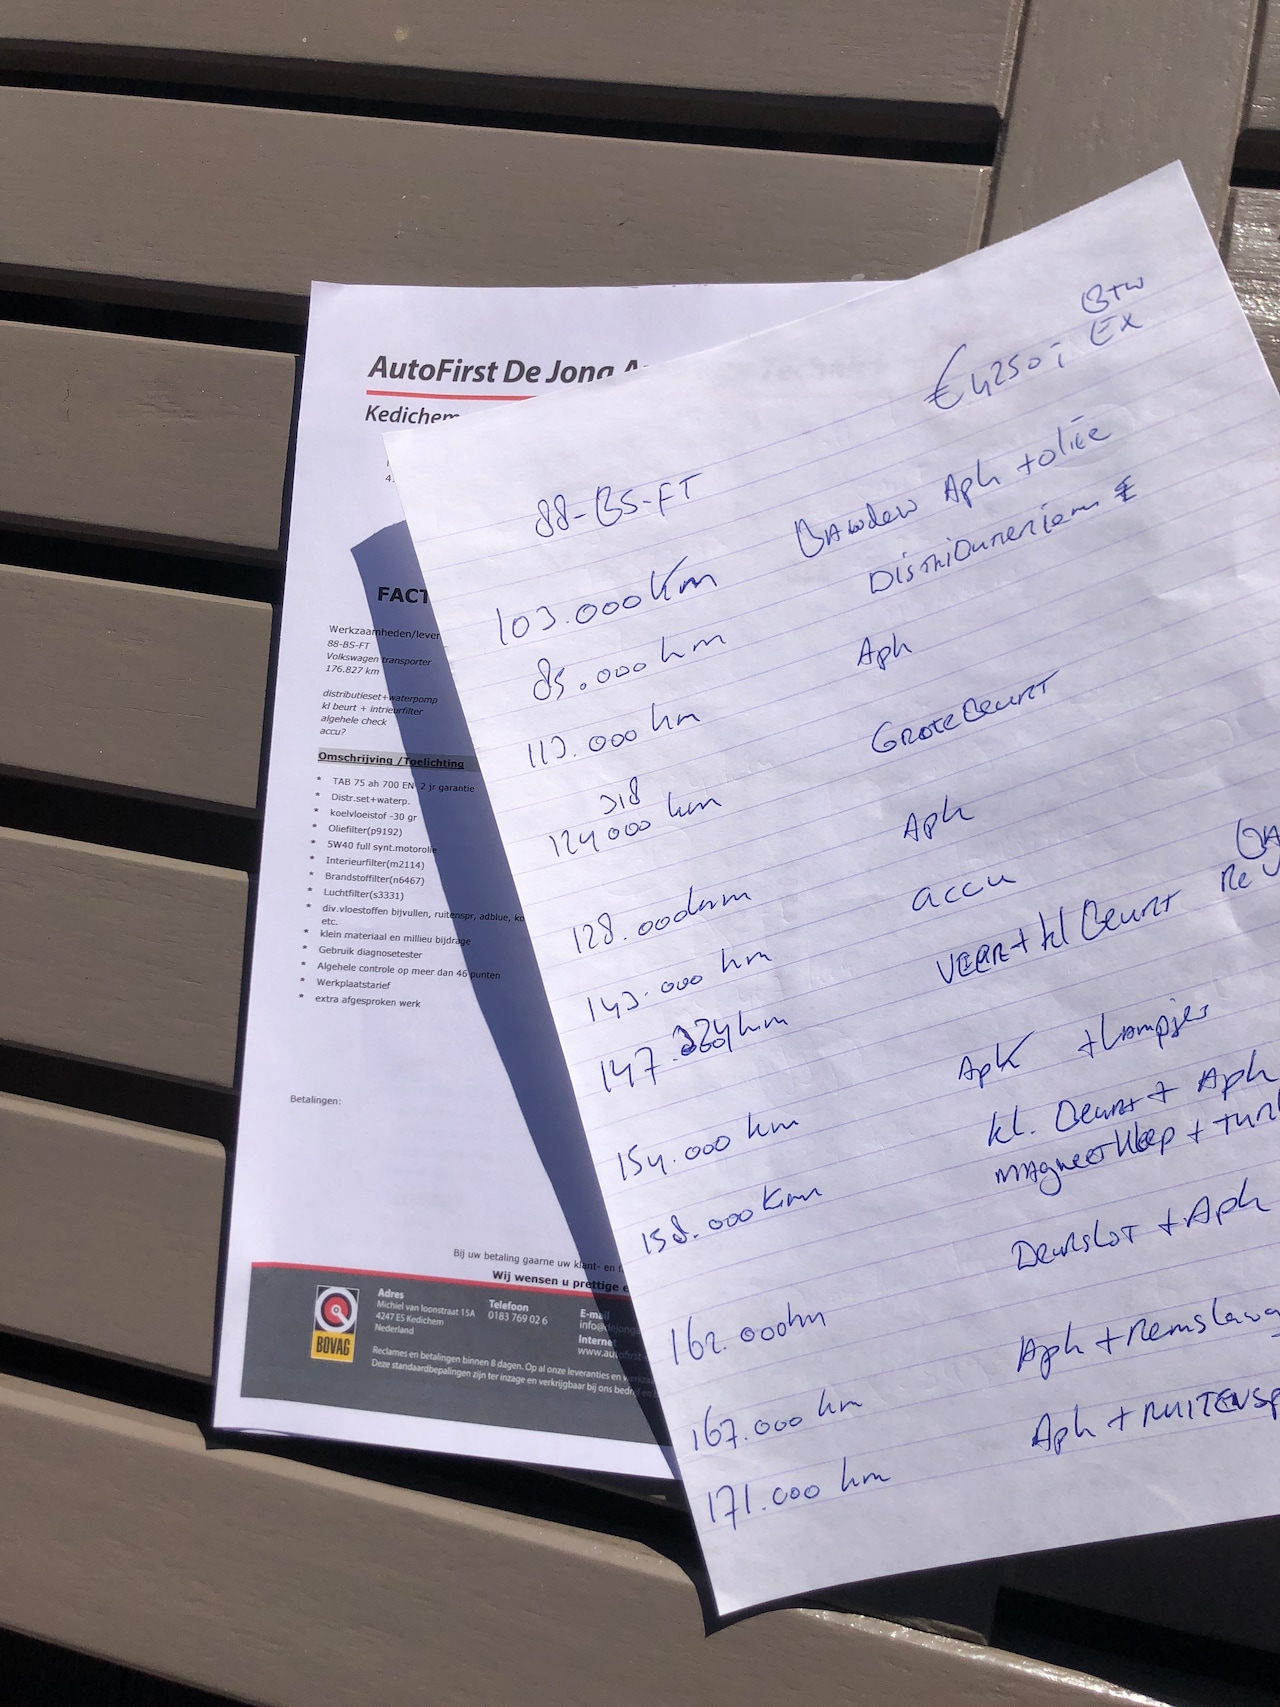 AutoFirst De Jong A
Kedichem
4.
FACT
Werkzaamheden/lever
88-BS-FT
Volkswagen transporter
176.827 km
distributieset+waterpomp
kl beurt + intrieurfilter
algehele check
accu?
Omschrijving /Toelichting
* TAB 75 ah 700 EN 2 jr garantie
* Distr.set+waterp.
* koelvloeistof -30 gr
* Oliefilter(p9192)
* 5W40 full synt.motorolie
* Interieurfilter(m2114)
* Brandstoffilter(n6467)
* Luchtfilter(s3331)
* div.vloestoffen bijvullen, ruitenspr, adblue, ko
etc.
* klein materiaal en millieu bijdrage
* Gebruik diagnosetester
* Algehele controle op meer dan 46 punten
* Werkplaatstarief
* extra afgesproken werk
Betalingen:
Bij uw betaling gaarne uw klant- en
Wij wensen u prettige
BOVAG
Adres
Michiel van loonstraat 15A
4247 ES Kedichem
Nederland
Telefoon
0183 769 02 6
E-mail
info@dejong
Internet
www.autofirst
Reclames en betalingen binnen 8 dagen. Op al onze leveranties en
Deze standaardbepalingen zijn ter inzage en verkrijgbaar bij ons
BTW
€ 4250,- EX
88-BS-FT
103.000 km Banden Apk + olie
85.000 km Distributieriem
113.000 km Apk
318
124000 km Grote Beurt
128.000km Apk
143.000 km accu
147.324 km VEER + kl Beurt
154.000 km APK + Lampjes
158.000 km kl. Beurt + Apk
magneetklep +
162.000km Deurslot + Apk
167.000 km Apk +
171.000 km Apk + RUITENSP